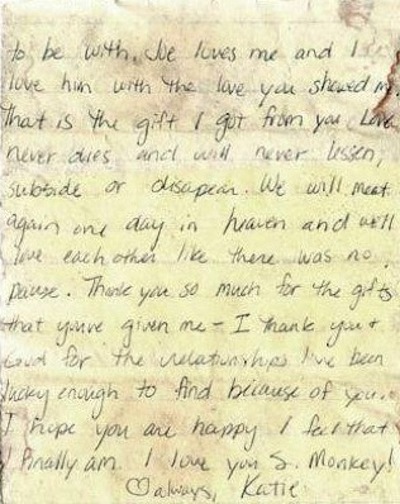 to be with. Joe loves me and I
love him with the love you showed me.
That is the gift I got from you. Love
never dies and will never lessen,
subside or disapear. We will meet
again one day in heaven and we'll
love each other like there was no
pause. Thank you so much for the gifts
that you've given me - I thank you +
God for the relationships I've been
lucky enough to find because of you.
I hope you are happy I feel that
I finally am. I love you S. Monkey!
♡always, Katie